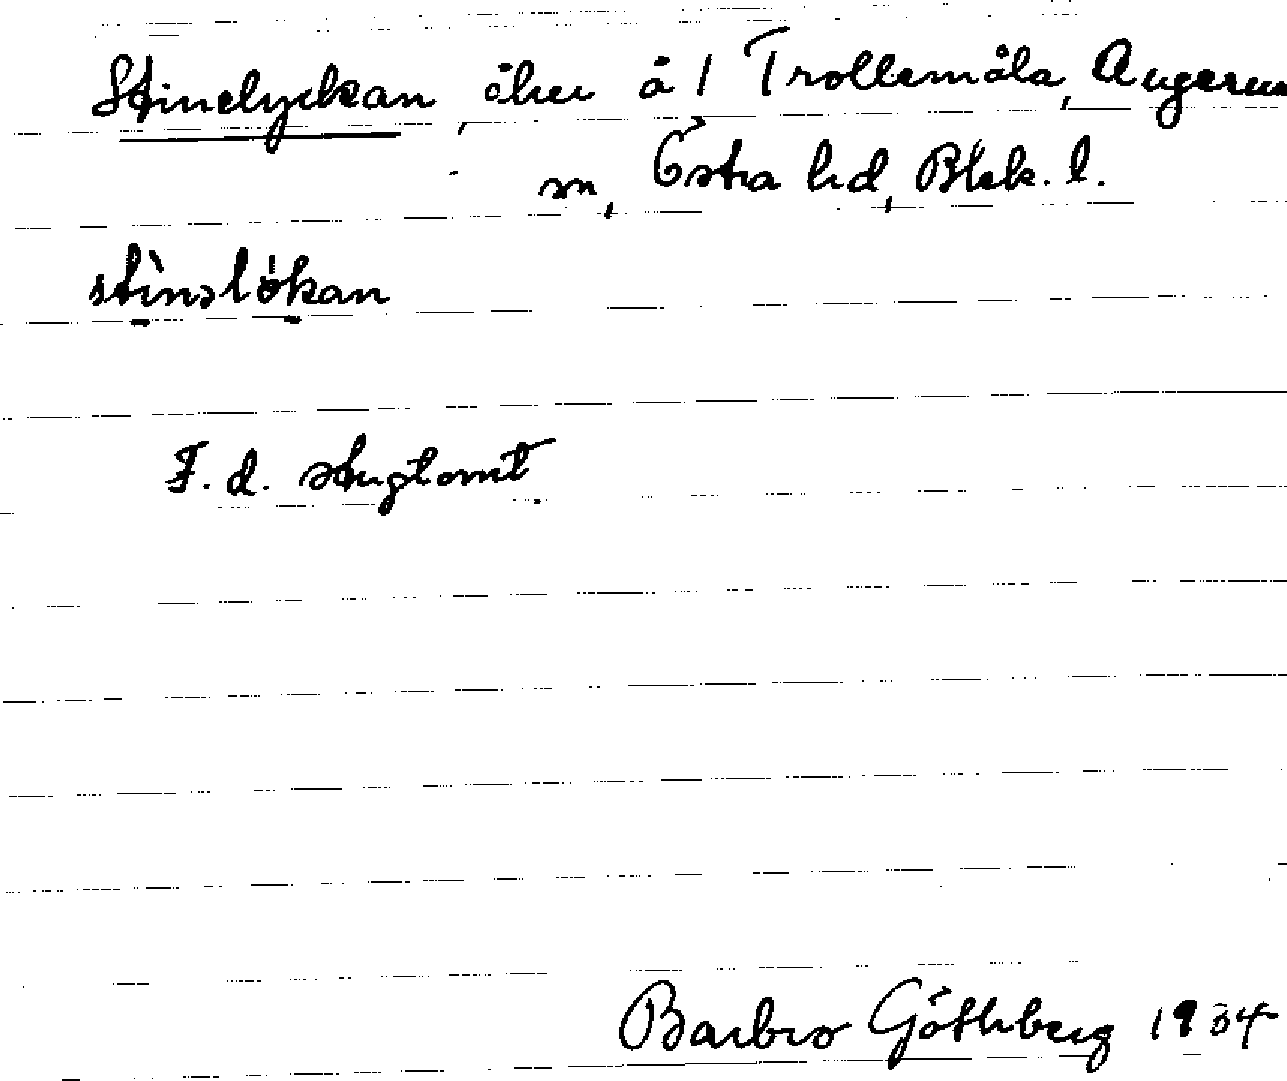 Stinelyckan, åker å 1 Trollemåla, Augerum
sn, Östra hd, Blek. l.
stìnəlỳkan
F. d. stugtomt.
Barbro Göthberg 1934